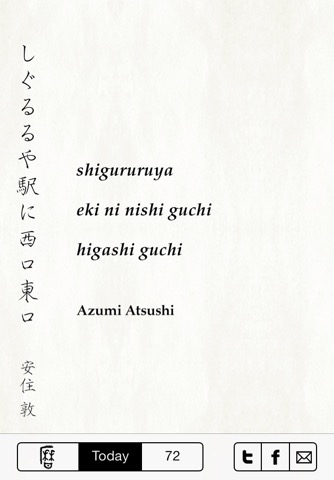 しぐるるや駅に西口東口
安住 敦
shigururuya
eki ni nishi guchi
higashi guchi
Azumi Atsushi
暦
Today
72